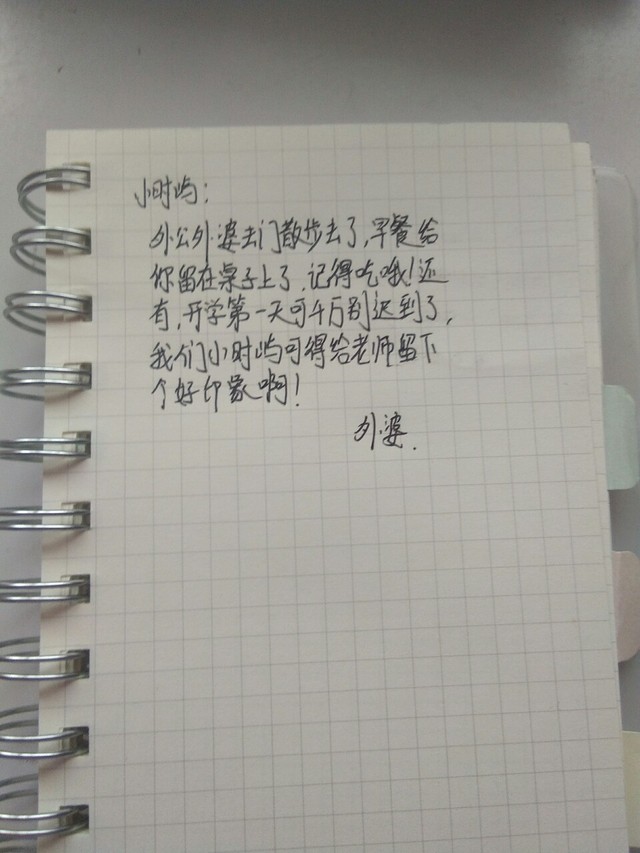 小时屿:
外公外婆去门散步去了,早餐给
你留在桌子上了.记得吃哦!还
有,开学第一天可千万别迟到了,
我们小时屿可得给老师留下
个好印象啊!
外婆.